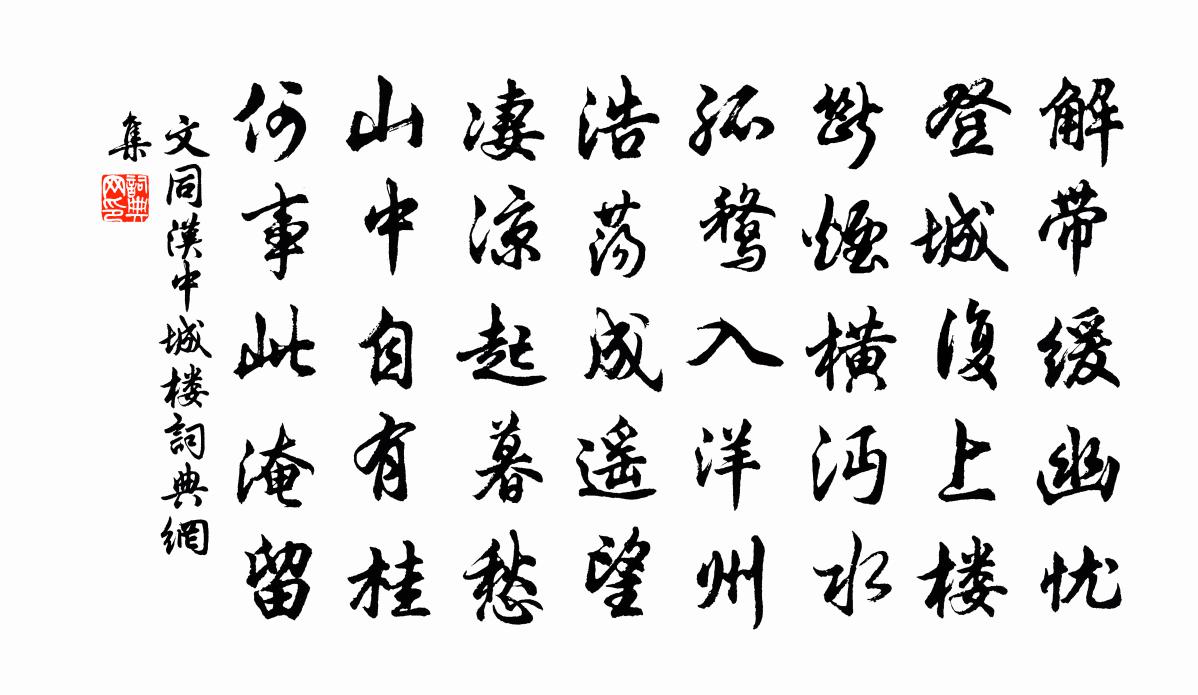 解带缓幽忧
登城復上楼
断煙横沔水
孤鹜入洋州
浩荡成遥望
凄凉起暮愁
山中自有桂
何事此淹留
文同漢中城楼詞典網
集
詞典
网印